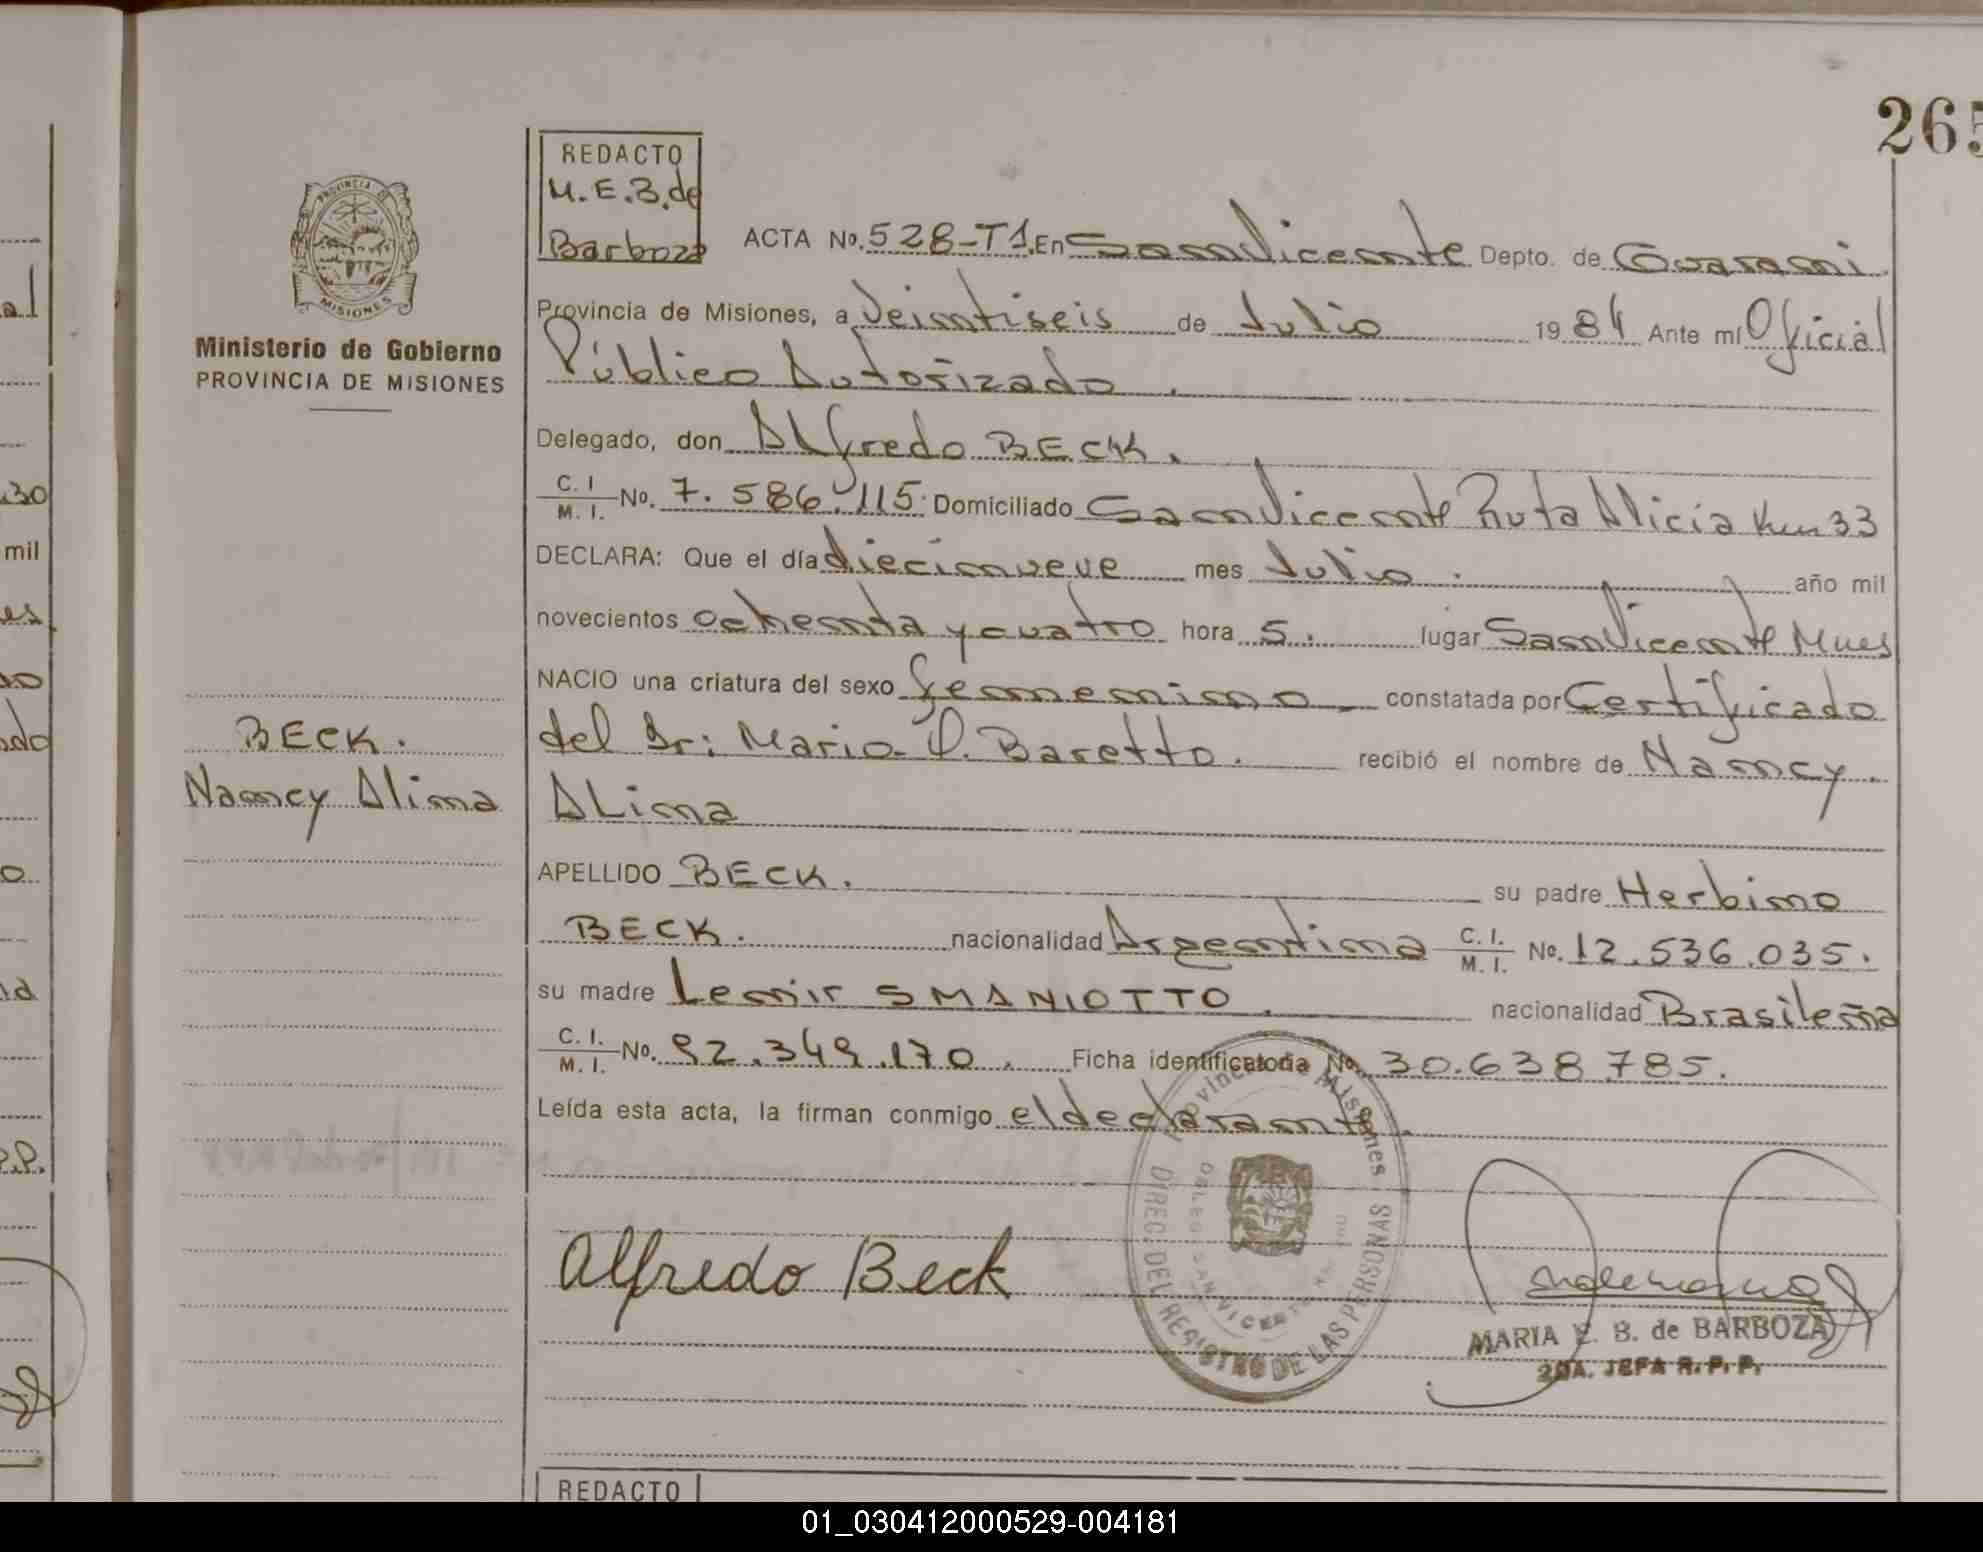 265
REDACTO
M.E.B. de
Barboza
ACTA No. 528-T1. En San Vicente Depto. de Guarani
PROVINCIA DE
MISIONES
Ministerio de Gobierno
PROVINCIA DE MISIONES
Provincia de Misiones, a Veintiseis de Julio 1984 Ante mí Oficial
Público Autorizado.
Delegado, don Alfredo BECK.
C. I. / M. I. No. 7.586.115. Domiciliado San Vicente Ruta Alicia Km 33
DECLARA: Que el día diecinueve mes Julio. año mil
novecientos ochenta y cuatro hora 5. lugar San Vicente Mnes
NACIO una criatura del sexo femenino constatada por Certificado
del Dr: Mario Baretto. recibió el nombre de Nancy
Alina
BECK.
Nancy Alina
APELLIDO BECK. su padre Herbino
BECK. nacionalidad Argentina C. I. / M. I. No. 12.536.035.
su madre Lenir SMANIOTTO. nacionalidad Brasileña
C. I. / M. I. No. 92.349.170. Ficha identificatoria No. 30.638.785.
Leída esta acta, la firman conmigo el declarante.
Provincia de Misiones
DIREC. DEL REGISTRO DE LAS PERSONAS
DELEG. SAN VICENTE
Alfredo Beck
MARIA E. B. de BARBOZA
2DA. JEFA R. P. P.
REDACTO
01_030412000529-004181